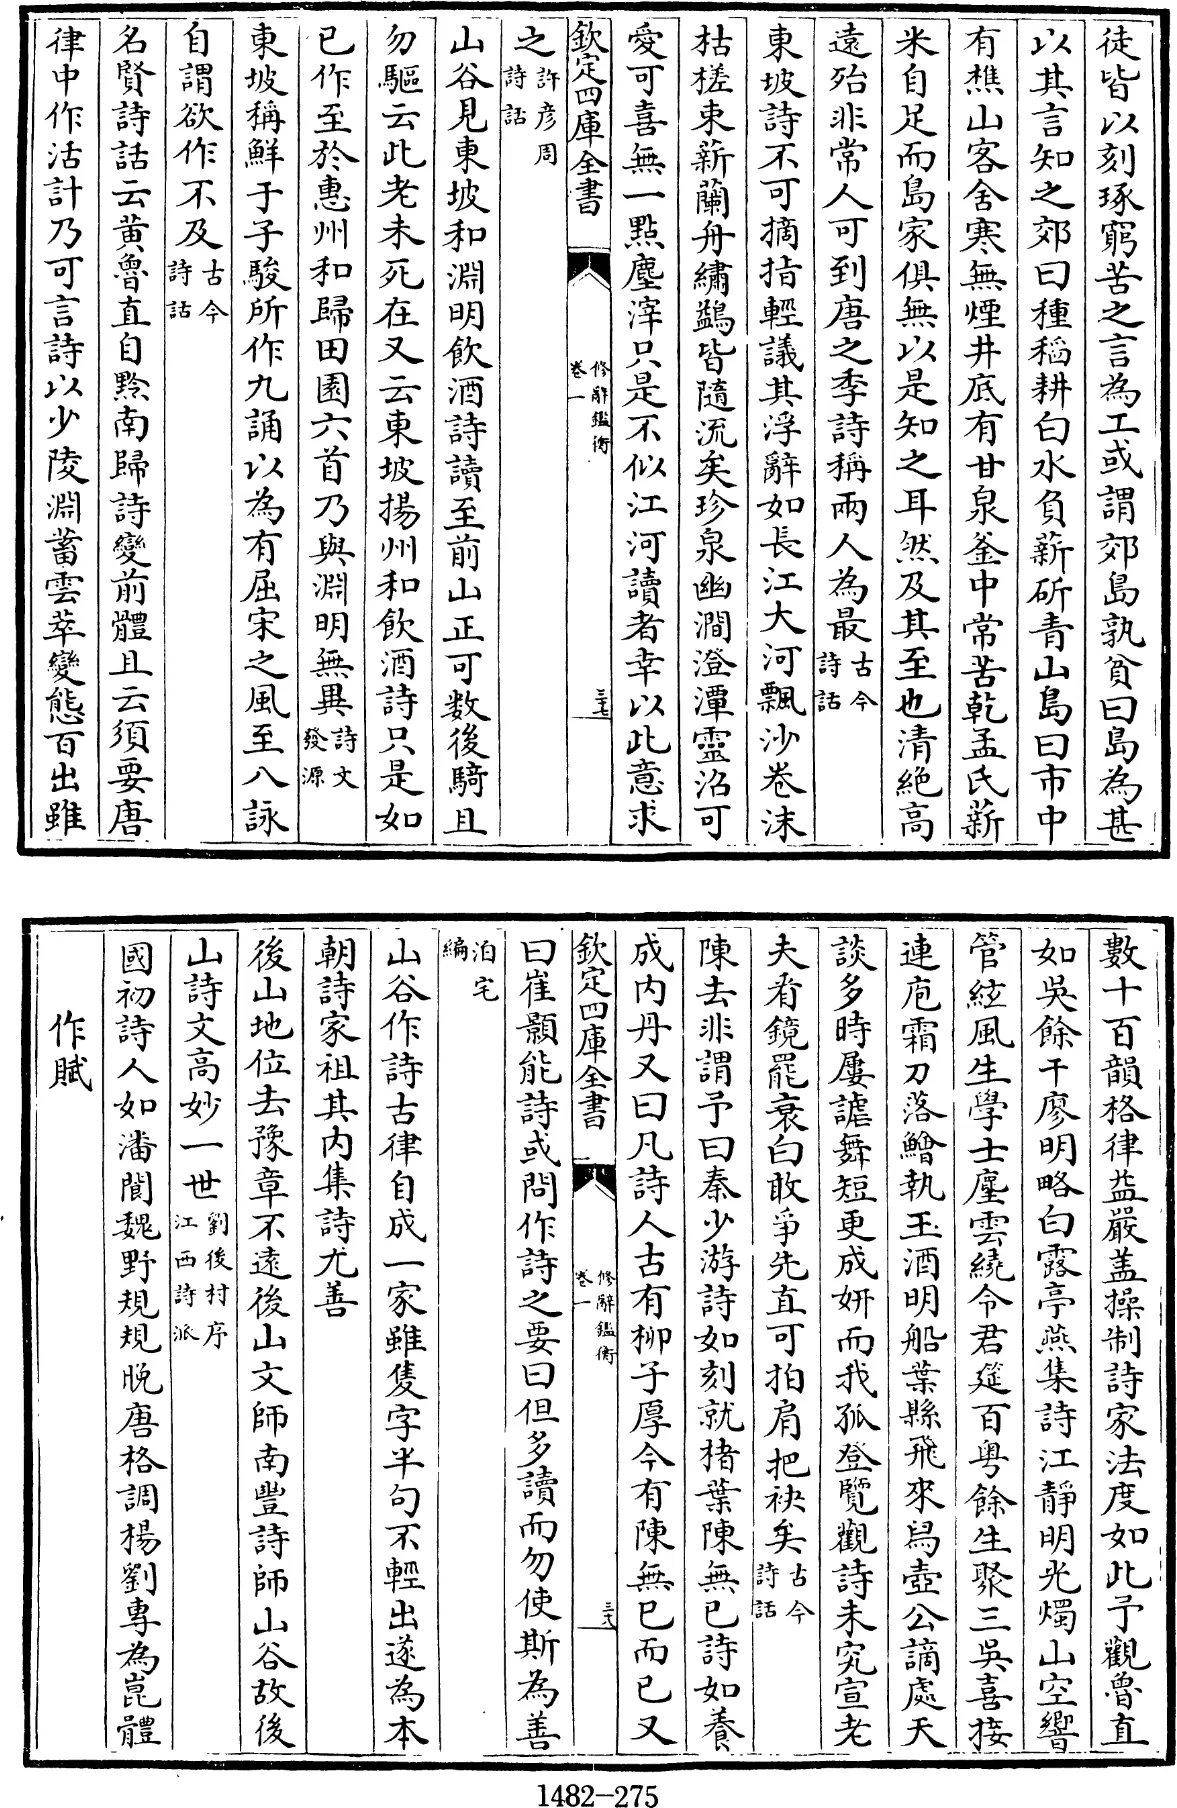 徒皆以刻琢窮苦之言為工或謂郊島孰貧曰島為甚
以其言知之郊曰種稻耕白水負薪斫青山島曰市中
有樵山客舍寒無煙井底有甘泉釡中常苦乾孟氏薪
米自足而島家俱無以是知之耳然及其至也清絶高
遠殆非常人可到唐之季詩稱兩人為最古今詩話
東坡詩不可摘指輕議其浮辭如長江大河飄沙卷沫
枯槎束薪蘭舟繡鷁皆隨流矣珍泉幽澗澄潭靈沼可
愛可喜無一點塵滓只是不似江河讀者幸以此意求
欽定四庫全書 修辭鑑衡 卷一 三七
之許彦周詩話
山谷見東坡和淵明飲酒詩讀至前山正可數後騎且
勿驅云此老未死在又云東坡揚州和飲酒詩只是如
已作至於惠州和歸田園六首乃與淵明無異詩文發源
東坡稱鮮于子駿所作九誦以為有屈宋之風至八詠
自謂欲作不及古今詩話
名賢詩話云黄魯直自黔南歸詩變前體且云須要唐
律中作活計乃可言詩以少陵淵蓄雲萃變態百出雖
數十百韻格律益嚴盖操制詩家法度如此予觀魯直
如吳餘干廖明略白露亭燕集詩江靜明光燭山空響
管絃風生學士麈雲繞令君筵百粤餘生聚三吳喜接
連庖霜刀落鱠執玉酒明船葉縣飛來舄壺公謫處天
談多時屢謔舞短更成妍而我孤登覽觀詩未究宣老
夫看鏡罷衰白敢爭先直可拍肩把袂矣古今詩話
陳去非謂予曰秦少游詩如刻就猪葉陳無已詩如養
成内丹又曰凡詩人古有柳子厚今有陳無已而已又
欽定四庫全書 修辭鑑衡 卷一 三八
曰崔顥能詩或問作詩之要曰但多讀而勿使斯為善
泊宅編
山谷作詩古律自成一家雖隻字半句不輕出遂為本
朝詩家祖其内集詩尤善
後山地位去豫章不遠後山文師南豐詩師山谷故後
山詩文高妙一世劉後村序江西詩派
國初詩人如潘閬魏野規規晩唐格調楊劉専為崑體
作賦
1482-275